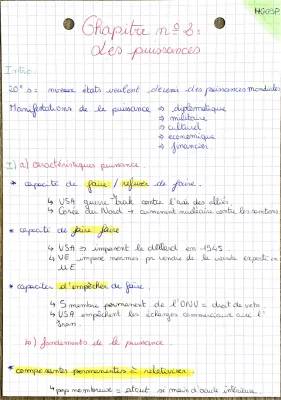 HGGSP
Chapitre n° 2 :
Les puissances
Intro :
20e s : nouveaux états veulent devenir des puissances mondiales
Manifestations de la puissance → diplomatique
→ militaire
→ culturel
→ économique
→ financier
I) a) caractéristiques puissance.
* capacité de faire / refuser de faire.
↳ USA guerre Irak contre l'avis des alliés
↳ Corée du Nord → armement nucléaire contre les sanctions
* capacité de faire faire
↳ USA → imposent le dollar en 1945
↳ UE impose normes pr vendre de la viande export en
UE.
* capacité d'empêcher de faire.
↳ 5 membre permanent de l'ONU = droit de veto.
↳ USA empêchent les échanges commerciaux avec l'
Iran.
b) fondements de la puissance.
* composantes permanentes à relativiser.
↳ pop nombreuse = atout si main d'œuvre